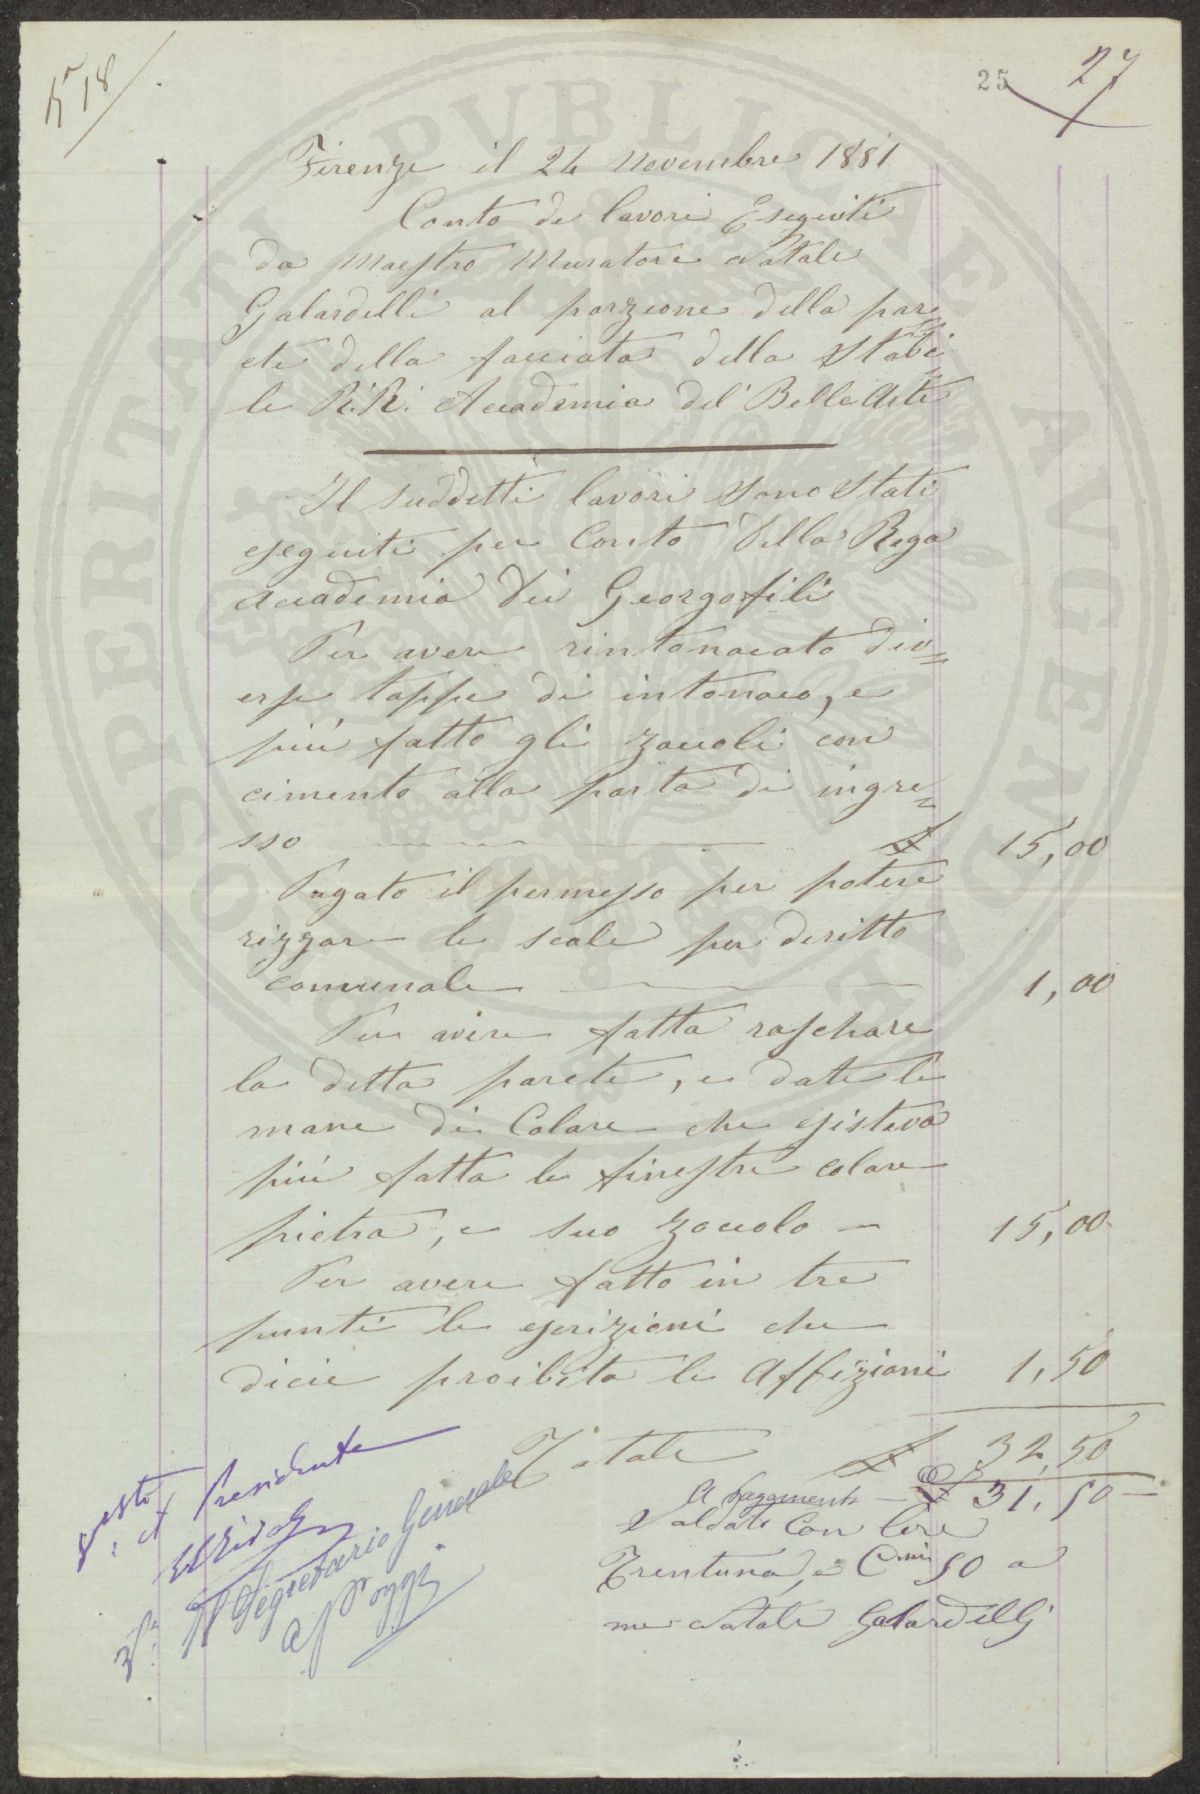 N 18
25
27
Firenze il 24 Novembre 1881
Conto de lavori Eseguiti
da Maestro Muratore Natale
Galardelli al porzione della par=
ete della facciata della Stabi=
le R. R. Accademia del Belle Arti
Il suddetti lavori sono Stati
eseguiti per Conto Della Rega
accademia Dei Georgofili
Per avere rintonacato div=
erse toppe di intonaco, e
più fatto gli zoccoli con
cimento alla porta di ingre=
sso £ 15,00
Pagato il permesso per potere
rizzare le scale per deritto
comunale 1,00
Per avere fatta raschare
la detta parete, e date le
mane di Colore che esisteva
più fatta le finestre colore
pietra, e suo zoccolo 15,00
Per avere fatto in tre
punti le escrizioni che
dicie proibita le Affizioni 1,50
Totale £ 32,50
A pagamento £ 31,50
Saldato Con lire
Trentuna, e Cmi 50 a
me Natale Galardelli
Visto
Il Presidente
Il Segretario Generale
A Poggi
SOSPERITATI PVBLICAE AVGENDAE